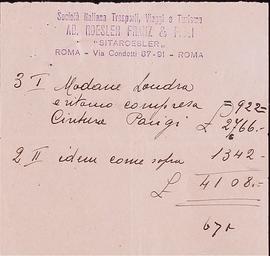 Società Italiana Trasporti, Viaggi e Turismo
AD. ROESLER FRANZ & FIGLI
"SITAROESLER"
ROMA - Via Condotti 87-91 - ROMA
3 I Modane Londra
e ritorno compresa 922
Cintura Parigi £ 2766.-
2 II idem come sopra 1342-
£ 4108.-